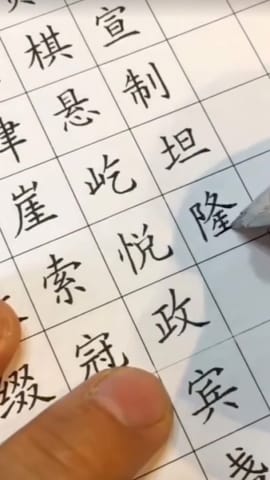 棋宣
悬制
崖屹坦
索悦隆
缀冠政
宾